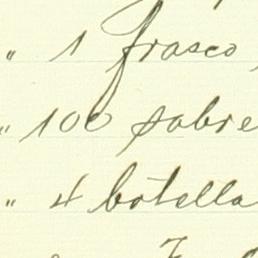 " 1 frasco
" 100 sobre
" 4 botella